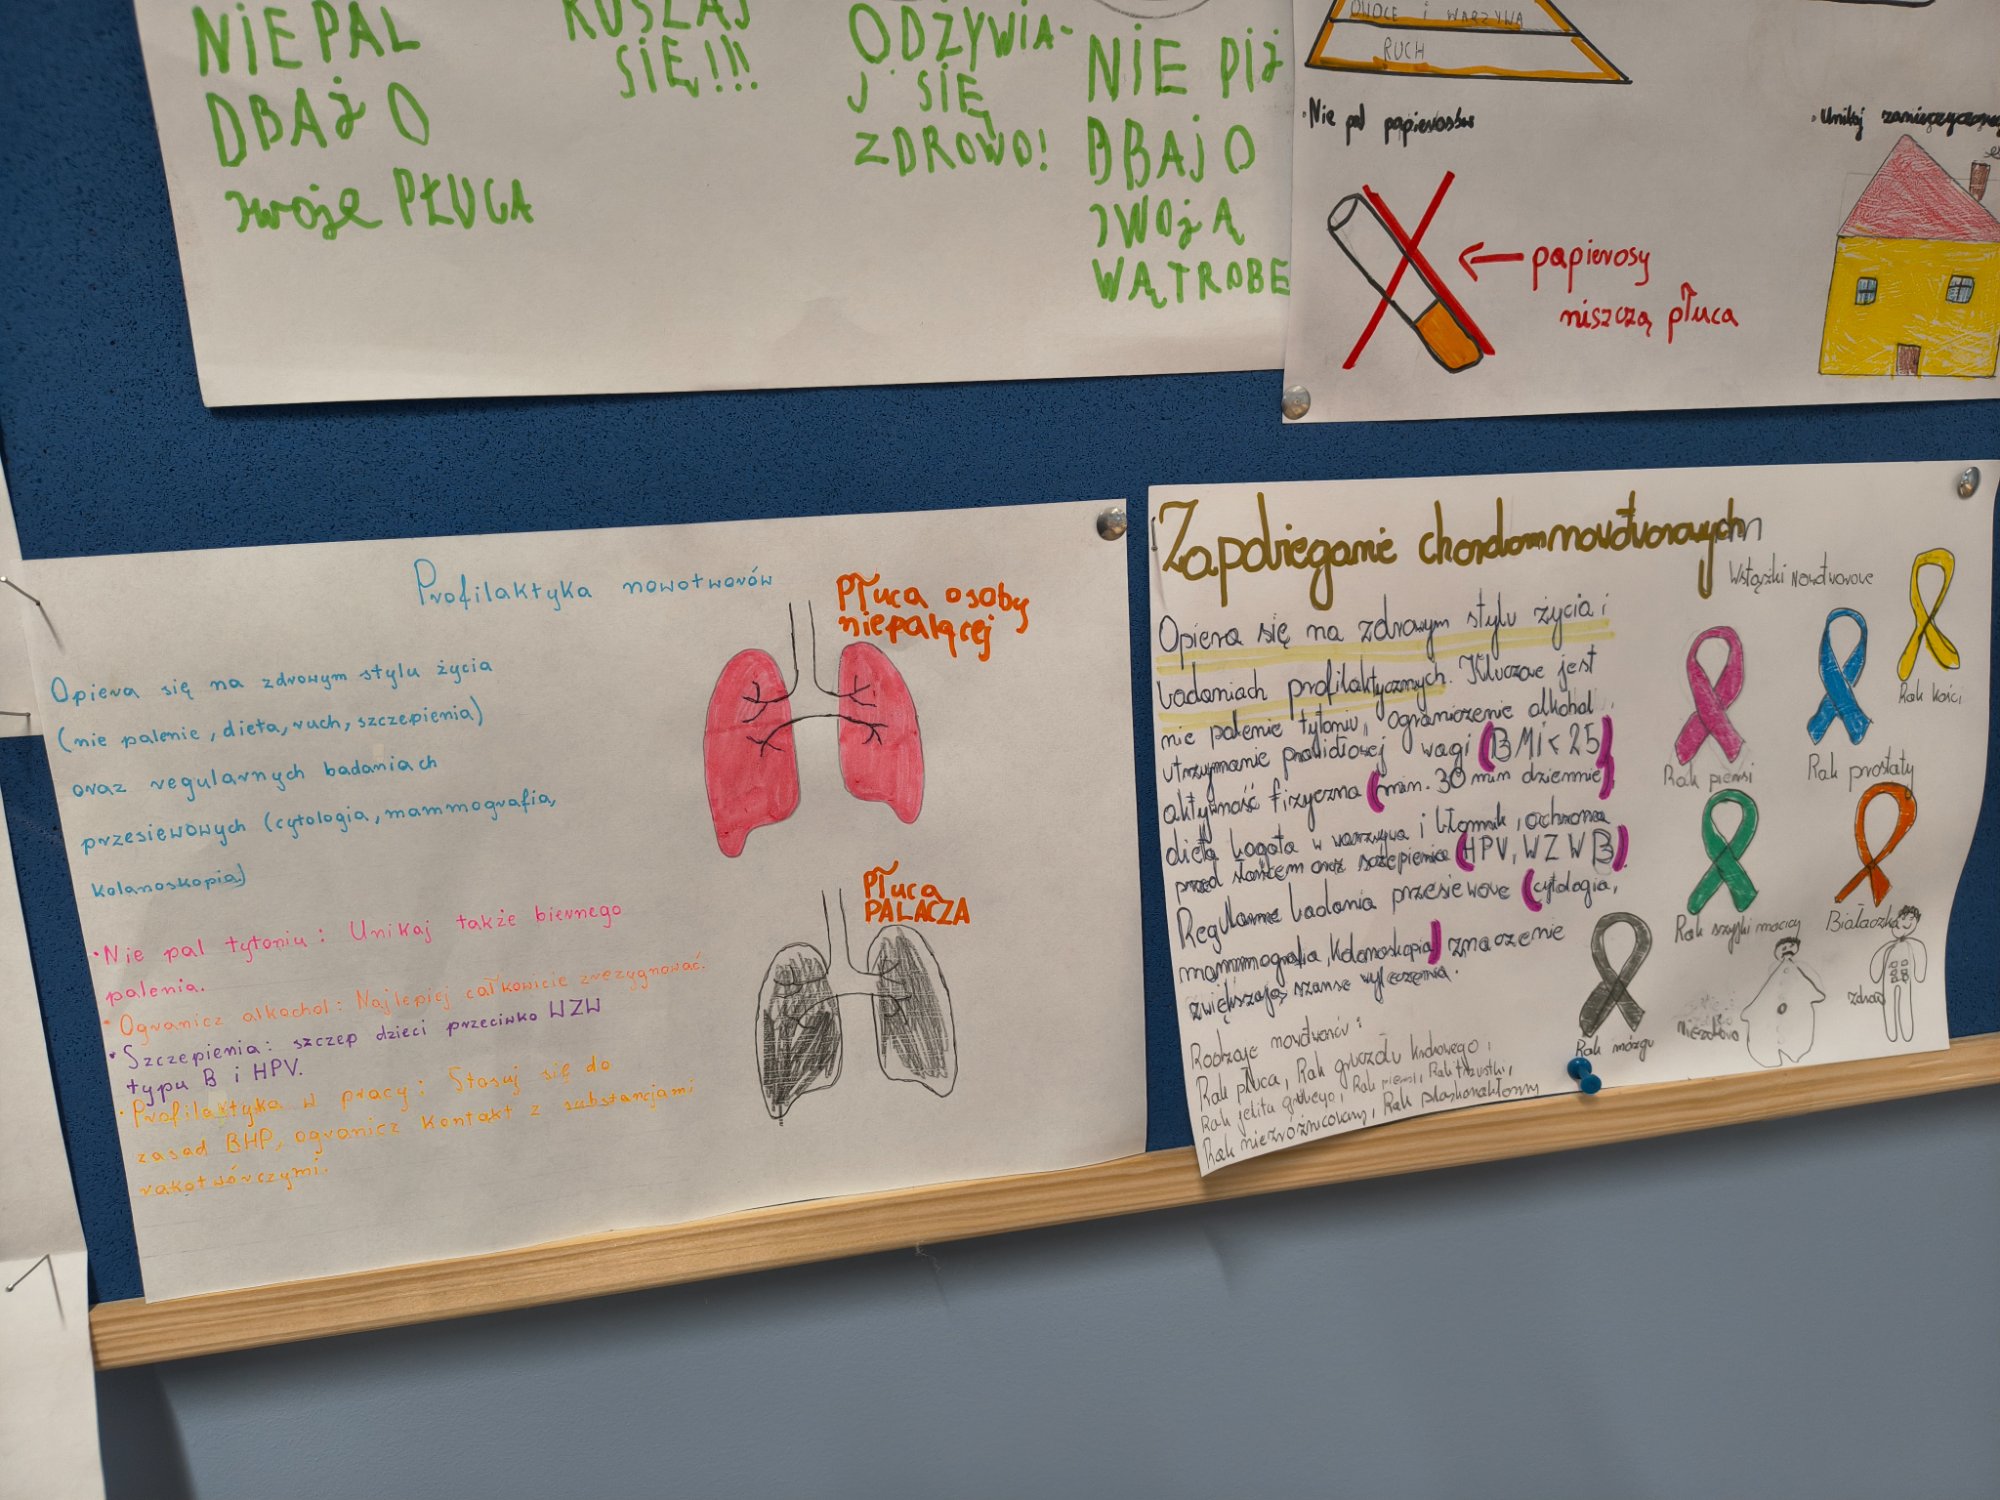 NIE PAL
DBAJ O
TWOJE PŁUCA
RUSZAJ
SIĘ!!!
ODŻYWIA-
J SIĘ
ZDROWO!
NIE PIJ
DBAJ O
TWOJĄ
WĄTROBE
OWOCE i WARZYWA
RUCH
• Nie pal papierosów
papierosy
niszczą płuca
• Unikaj
Profilaktyka nowotworów
Opiera się na zdrowym stylu życia
(nie palenie, dieta, ruch, szczepienia)
oraz regularnych badaniach
przesiewowych (cytologia, mammografia,
kolanoskopia)
• Nie pal tytoniu: Unikaj także biernego
palenia.
• Ogranicz alkochol: Najlepiej całkowicie zrezygnować.
• Szczepienia: szczep dzieci przeciwko WZW
typu B i HPV.
• Profilaktyka w pracy: Stosuj się do
zasad BHP, ogranicz kontakt z substancjami
rakotwórczymi.
Płuca osoby
niepalącej
Płuca
PALACZA
Zapobieganie chorobom nowotworowych
Opiera się na zdrowym stylu życia i
badaniach profilaktycznych. Kluczowe jest
nie palenie tytoniu, ograniczenie alkohol,
utrzymanie prawidłowej wagi (BMI < 25)
aktywność fizyczna (min. 30 min dziennie)
dieta bogata w warzywa i błonnik, ochrona
przed słońcem oraz szczepienia (HPV, WZW B).
Regularne badania przesiewowe (cytologia,
mammografia, kolonoskopia) znacznie
zwiększają szanse wyleczenia.
Rodzaje nowotworów:
Rak płuca, Rak gruczołu krokowego,
Rak jelita grubego, Rak piersi, Rak trzustki,
Rak niezróżnicowany, Rak płaskonabłonny
Wstążki nowotworowe
Rak kości
Rak piersi
Rak prostaty
Rak szyjki macicy
Białaczka
Rak mózgu
niezdrowo
zdrowo